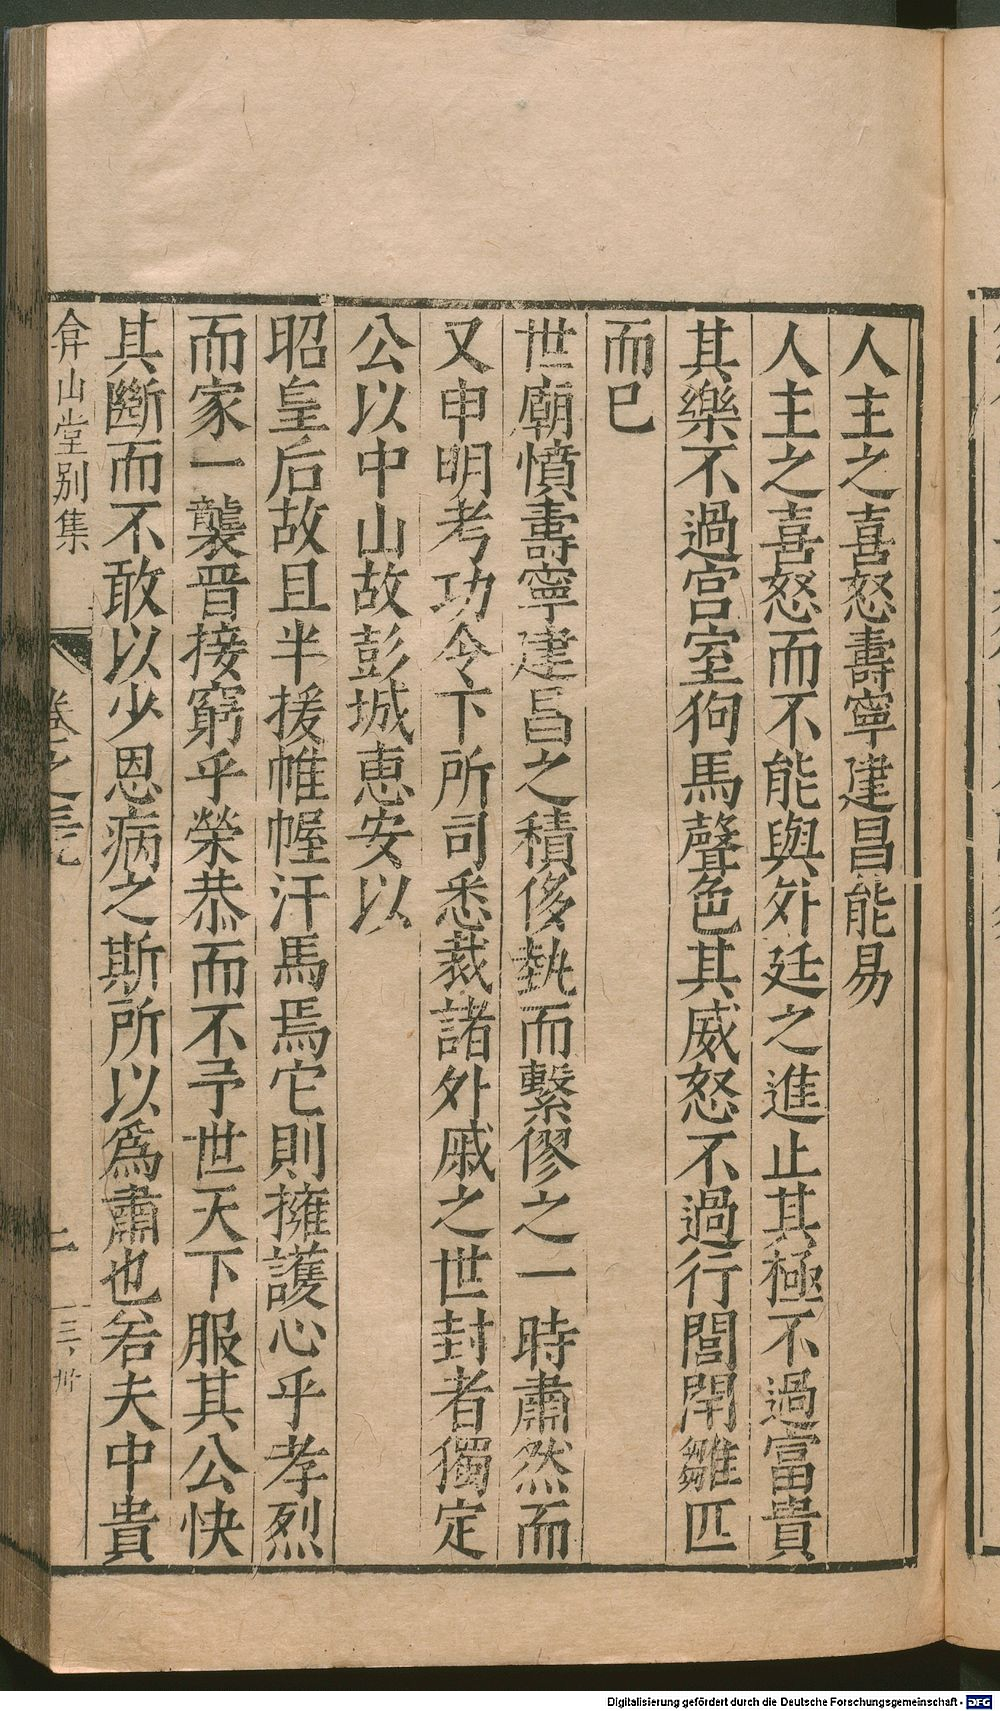 人主之喜怒壽寧建昌能易
人主之喜怒而不能與外廷之進止其極不過富貴
其樂不過宫室狗馬聲色其威怒不過行閭閈雛匹
而已
世廟憤壽寧建昌之積侈埶而繫僇之一時肅然而
又申明考功令下所司悉裁諸外戚之世封者獨定
公以中山故彭城恵安以
昭皇后故且半援帷幄汗馬焉它則擁護心乎孝烈
而家一襲晋接窮乎榮恭而不予世天下服其公快
其斷而不敢以少恩病之斯所以爲肅也若夫中貴
弇山堂别集
卷之
Digitalisierung gefördert durch die Deutsche Forschungsgemeinschaft - DFG